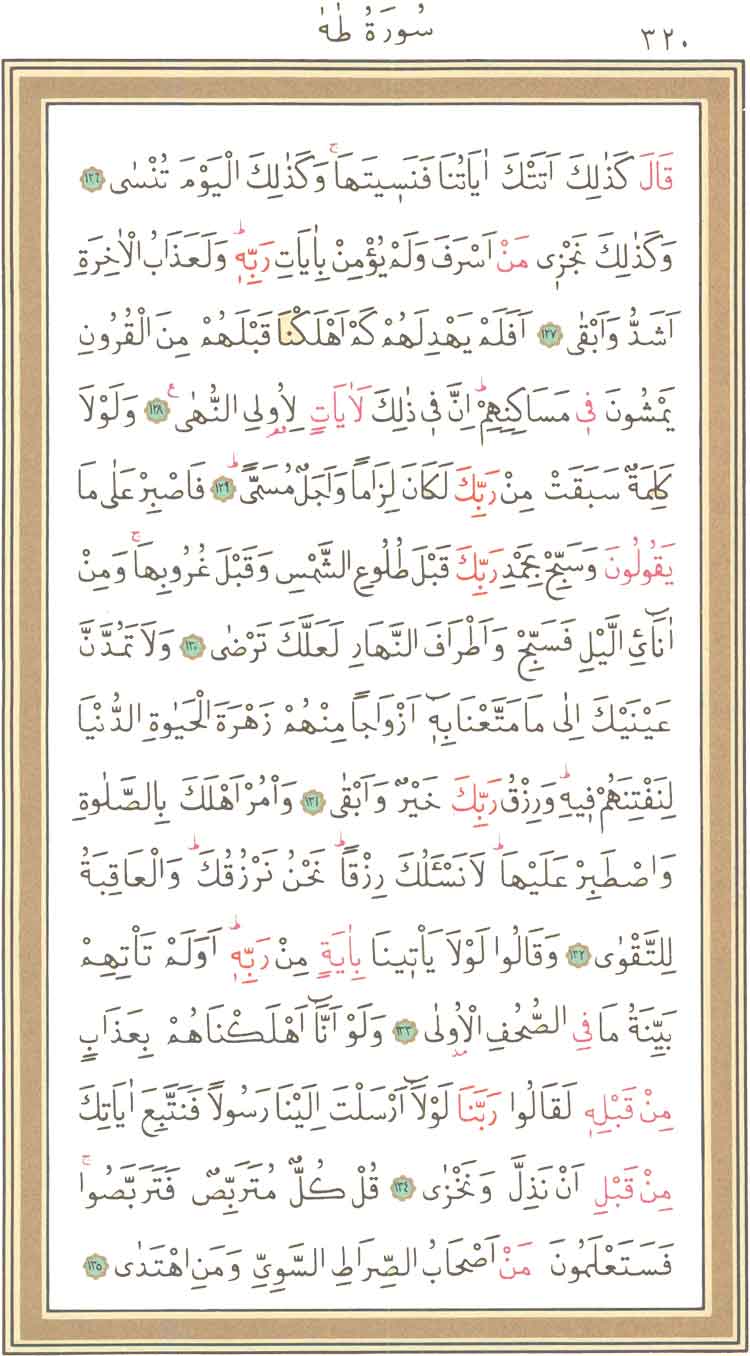 سُورَةُ طٰهٰ ٣٢٠
قَالَ كَذٰلِكَ اَتَتْكَ اٰيَاتُنَا فَنَسٖيتَهَاۚ وَكَذٰلِكَ الْيَوْمَ تُنْسٰى ﴿١٢٦﴾
وَكَذٰلِكَ نَجْزٖى مَنْ اَسْرَفَ وَلَمْ يُؤْمِنْ بِاٰيَاتِ رَبِّهٖؕ وَلَعَذَابُ الْاٰخِرَةِ
اَشَدُّ وَاَبْقٰى ﴿١٢٧﴾ اَفَلَمْ يَهْدِ لَهُمْ كَمْ اَهْلَكْنَا قَبْلَهُمْ مِنَ الْقُرُونِ
يَمْشُونَ فٖى مَسَاكِنِهِمْؕ اِنَّ فٖى ذٰلِكَ لَاٰيَاتٍ لِاُولِى النُّهٰىࣖ ﴿١٢٨﴾ وَلَوْلَا
كَلِمَةٌ سَبَقَتْ مِنْ رَبِّكَ لَكَانَ لِزَاماً وَاَجَلٌ مُسَمًّىؕ ﴿١٢٩﴾ فَاصْبِرْ عَلٰى مَا
يَقُولُونَ وَسَبِّحْ بِحَمْدِ رَبِّكَ قَبْلَ طُلُوعِ الشَّمْسِ وَقَبْلَ غُرُوبِهَاۚ وَمِنْ
اٰنَٓائِ الَّيْلِ فَسَبِّحْ وَاَطْرَافَ النَّهَارِ لَعَلَّكَ تَرْضٰى ﴿١٣٠﴾ وَلَا تَمُدَّنَّ
عَيْنَيْكَ اِلٰى مَا مَتَّعْنَا بِهٖٓ اَزْوَاجاً مِنْهُمْ زَهْرَةَ الْحَيٰوةِ الدُّنْيَا
لِنَفْتِنَهُمْ فٖيهِؕ وَرِزْقُ رَبِّكَ خَيْرٌ وَاَبْقٰى ﴿١٣١﴾ وَاْمُرْ اَهْلَكَ بِالصَّلٰوةِ
وَاصْطَبِرْ عَلَيْهَاؕ لَا نَسْـَٔلُكَ رِزْقاًؕ نَحْنُ نَرْزُقُكَؕ وَالْعَاقِبَةُ
لِلتَّقْوٰى ﴿١٣٢﴾ وَقَالُوا لَوْلَا يَأْتٖينَا بِاٰيَةٍ مِنْ رَبِّهٖؕ اَوَلَمْ تَأْتِهِمْ
بَيِّنَةُ مَا فِى الصُّحُفِ الْاُولٰى ﴿١٣٣﴾ وَلَوْ اَنَّٓا اَهْلَكْنَاهُمْ بِعَذَابٍ
مِنْ قَبْلِهٖ لَقَالُوا رَبَّنَا لَوْلَٓا اَرْسَلْتَ اِلَيْنَا رَسُولاً فَنَتَّبِعَ اٰيَاتِكَ
مِنْ قَبْلِ اَنْ نَذِلَّ وَنَخْزٰى ﴿١٣٤﴾ قُلْ كُلٌّ مُتَرَبِّصٌ فَتَرَبَّصُواۚ
فَسَتَعْلَمُونَ مَنْ اَصْحَابُ الصِّرَاطِ السَّوِىِّ وَمَنِ اهْتَدٰى ﴿١٣٥﴾